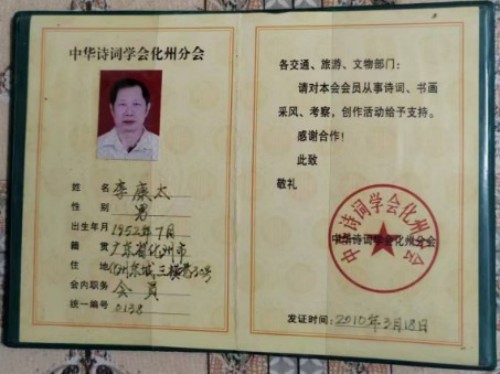 中华诗词学会化州分会
姓名 李康太
性别 男
出生年月 1952年7月
籍贯 广东省化州市
住地 化州东城三横巷
会内职务 会员
统一编号 0138
各交通、旅游、文物部门：
请对本会会员从事诗词、书画
采风、考察，创作活动给予支持。
感谢合作！
此致
敬礼
中华诗词学会化州分会
中华诗词学会化州分会
发证时间：2010年3月18日